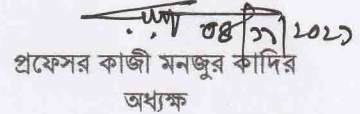 ০৪/১১/২০২১
প্রফেসর কাজী মনজুর কাদির
অধ্যক্ষ